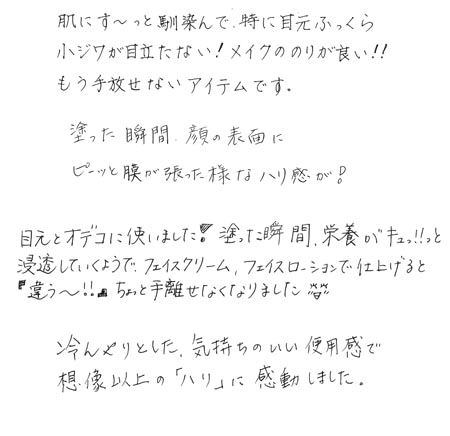 肌にす〜っと馴染んで、特に目元ふっくら
小ジワが目立たない!メイクののりが良い!!
もう手放せないアイテムです。
塗った瞬間、顔の表面に
ピーッと膜が張った様なハリ感が!
目元とオデコに使いました!塗った瞬間、栄養がキュッ!!っと
浸透していくようで、フェイスクリーム、フェイスローションで仕上げると
『違う〜!!』ちょっと手離せなくなりました
冷んやりとした、気持ちのいい使用感で
想像以上の「ハリ」に感動しました。